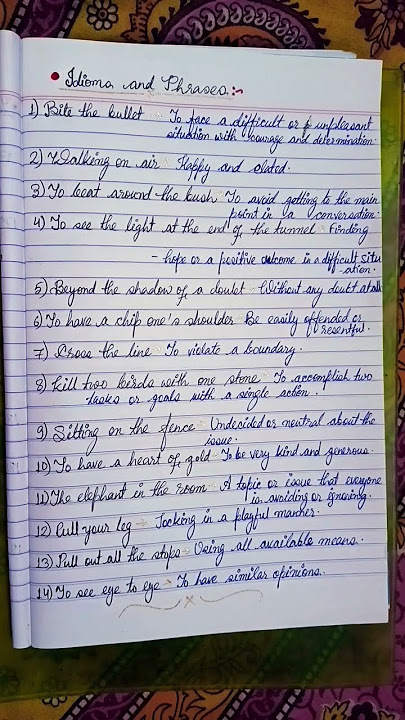 Idioms and Phrases :-
1) Bite the bullet - To face a difficult or unpleasant
situation with courage and determination.
2) Walking on air - Happy and elated.
3) To beat around the bush - To avoid getting to the main
point in a conversation.
4) To see the light at the end of the tunnel - Finding
- hope or a positive outcome in a difficult situ
-ation.
5) Beyond the shadow of a doubt - Without any doubt at all
6) To have a chip one's shoulder - Be easily offended or
resentful.
7) Cross the line - To violate a boundary.
8) Kill two birds with one stone - To accomplish two
tasks or goals with a single action.
9) Sitting on the fence - Undecided or neutral about the
issue.
10) To have a heart of gold - To be very kind and generous.
11) The elephant in the room - A topic or issue that everyone
is avoiding or ignoring.
12) Pull your leg - Jocking in a playful manner.
13) Pull out all the stops - Using all available means.
14) To see eye to eye - To have similar opinions.